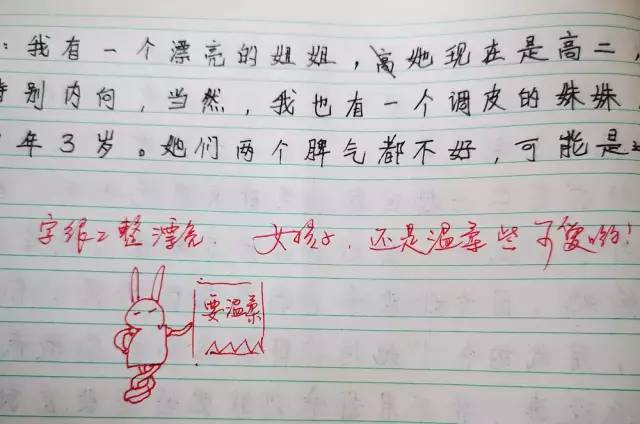 ：我有一个漂亮的姐姐，她现在是高二，
特别内向，当然，我也有一个调皮的妹妹
年3岁。她们两个脾气都不好，可能是
字很工整漂亮. 女孩子，还是温柔些可爱哟！
要温柔